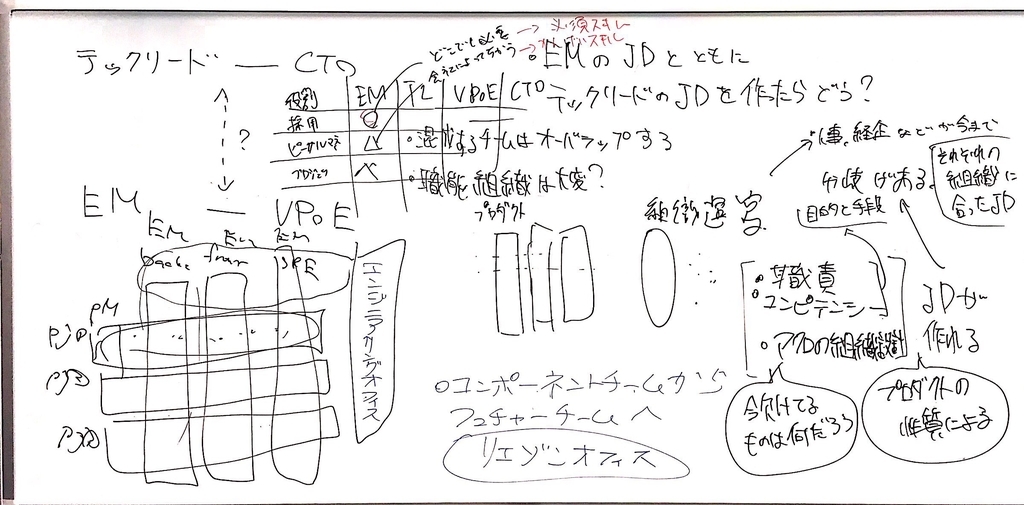 テックリード — CTO
どこでも必要 → 必須スキル
会社によってちがう
・EMのJDとともに
テックリードのJDを作ったらどう?
役割 EM TL VPoE CTO
採用 ○
ピープルマネ △
プロジェクト
?
・混成するチームはオーバラップする
・職能組織は大変?
EM — VPoE
プロダクト
組織運営
・人事、経企などが今まで
分岐げある。
それぞれの
組織に
合ったJD
目的と手段
EM EM EM
back front SRE
PM
PJ①
PJ②
PJ③
エンジニアリングオフィス
・職責
・コンピテンシー
・マクロの組織設計
JDが
作れる
・コンポーネントチームから
フュチャーチームへ
リエゾンオフィス
今欠けてる
ものは何だろう
プロダクトの
性質による